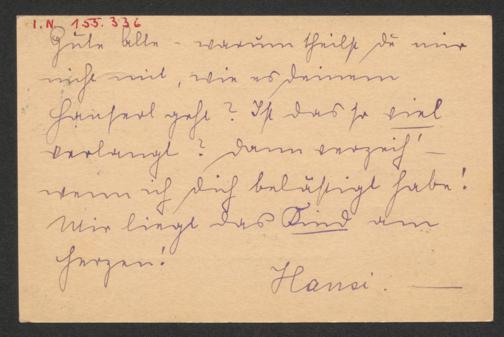 I.N. 155.336
Gute Alte - warum theilst du mir
nicht mit, wie es deinem
Hanserl geht? Ist das so viel
verlangt? Dann verzeih' -
wenn ich dich belästigt habe!
Mir liegt das Kind am
Herzen!
Hansi. -